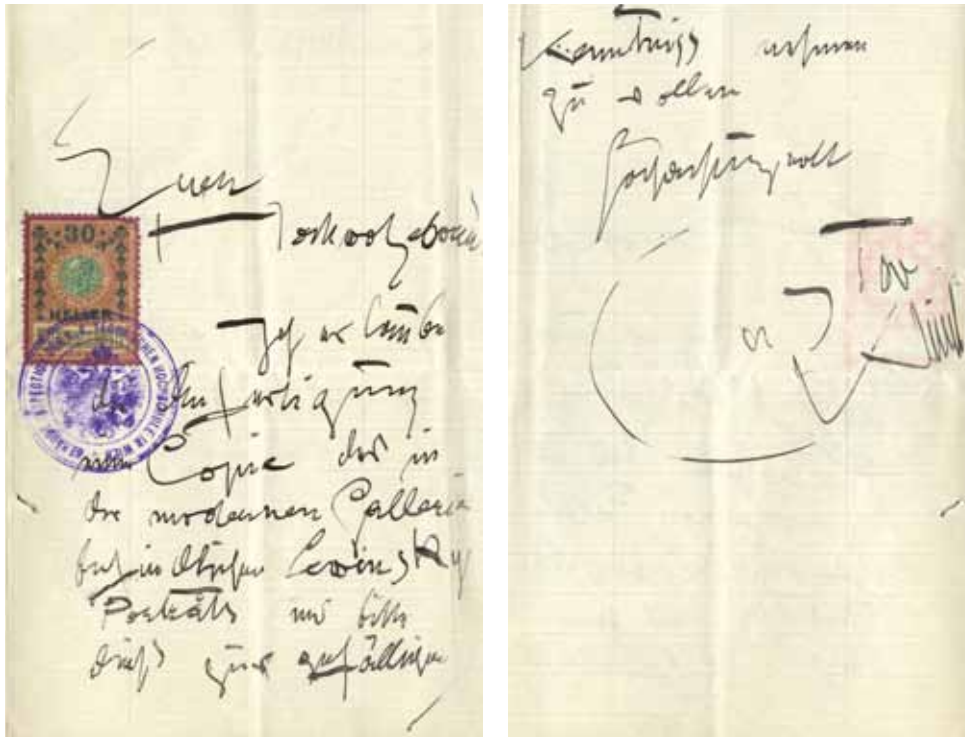 Euer
Hochwohlgeboren
30
HELLER
Ich erlaube
die Anfertigung
einer Copie des in
der modernen Gallerie
befindlichen Lewinsky
Porträts und bitte
dieß zur gefälligen
Kenntniss nehmen
zu wollen
hochachtungsvoll